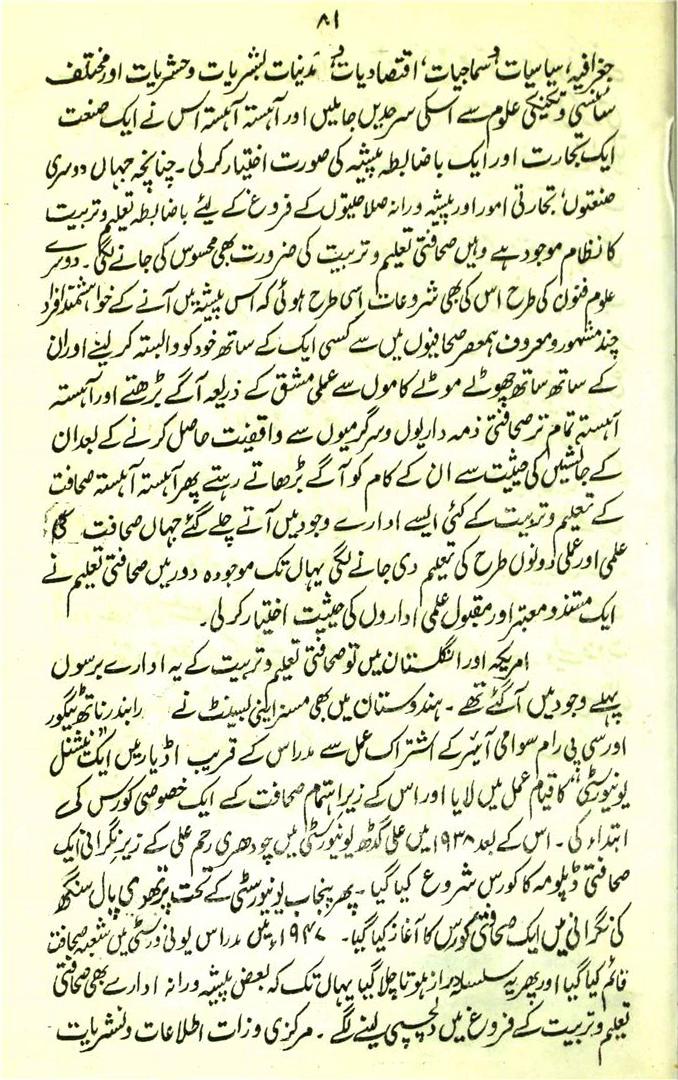 ۸۱
جغرافیہ، سیاسیات، سماجیات، اقتصادیات، مدنیات، بشریات و حشریات اور مختلف
سائنسی و تکنیکی علوم سے اسکی سرحدیں جا ملیں اور آہستہ آہستہ اس نے ایک صنعت
ایک تجارت اور ایک باضابطہ پیشہ کی صورت اختیار کر لی۔ چنانچہ جہاں دوسری
صنعتوں، تجارتی امور اور پیشہ ورانہ صلاحیتوں کے فروغ کے لیئے باضابطہ تعلیم و تربیت
کا نظام موجود ہے وہیں صحافتی تعلیم و تربیت کی ضرورت بھی محسوس کی جانے لگی۔ دوسرے
علوم فنون کی طرح اس کی بھی شروعات اسی طرح ہوئی کہ اس پیشہ میں آنے کے خواہشمند افراد
چند مشہور و معروف ہمعصر صحافیوں میں سے کسی ایک کے ساتھ خود کو وابستہ کر لیتے اور ان
کے ساتھ ساتھ چھوٹے موٹے کاموں سے عملی مشق کے ذریعہ آگے بڑھتے اور آہستہ
آہستہ تمام تر صحافتی ذمہ داریوں و سرگرمیوں سے واقفیت حاصل کرنے کے بعد ان
کے جانشیں کی حیثیت سے ان کے کام کو آگے بڑھاتے رہتے پھر آہستہ آہستہ صحافت
کے تعلیم و تربیت کے کئی ایسے ادارے وجود میں آتے چلے گئے جہاں صحافت کی
علمی اور عملی دونوں طرح کی تعلیم دی جانے لگی یہاں تک موجودہ دور میں صحافتی تعلیم نے
ایک مستند و معتبر اور مقبول علمی اداروں کی حیثیت اختیار کر لی۔
امریکہ اور انگلستان میں تو صحافتی تعلیم و تربیت کے یہ ادارے برسوں
پہلے وجود میں آ گئے تھے۔ ہندوستان میں بھی مسز اینی بسینٹ نے رابندر ناتھ ٹیگور
اور سی پی رام سوامی آئیر کے اشتراک عمل سے مدراس کے قریب اڈیار میں ایک "نیشنل
یونیورسٹی" کا قیام عمل میں لایا اور اس کے زیر اہتمام صحافت کے ایک خصوصی کورس کی
ابتداء کی۔ اس کے بعد ۱۹۳۸ میں علی گڈھ یونیورسٹی میں چودھری رحم علی کے زیر نگرانی ایک
صحافتی ڈپلومہ کا کورس شروع کیا گیا۔ پھر پنجاب یونیورسٹی کے تحت پرتھوی پال سنگھ
کی نگرانی میں ایک صحافتی کورس کا آغاز کیا گیا۔ ۱۹۴۷ء میں مدراس یونی ورسٹی میں شعبہ صحافت
قائم کیا گیا اور پھر یہ سلسلہ دراز ہوتا چلا گیا یہاں تک کہ بعض پیشہ ورانہ ادارے بھی صحافتی
تعلیم و تربیت کے فروغ میں دلچسپی لینے لگے۔ مرکزی وزات اطلاعات و نشریات